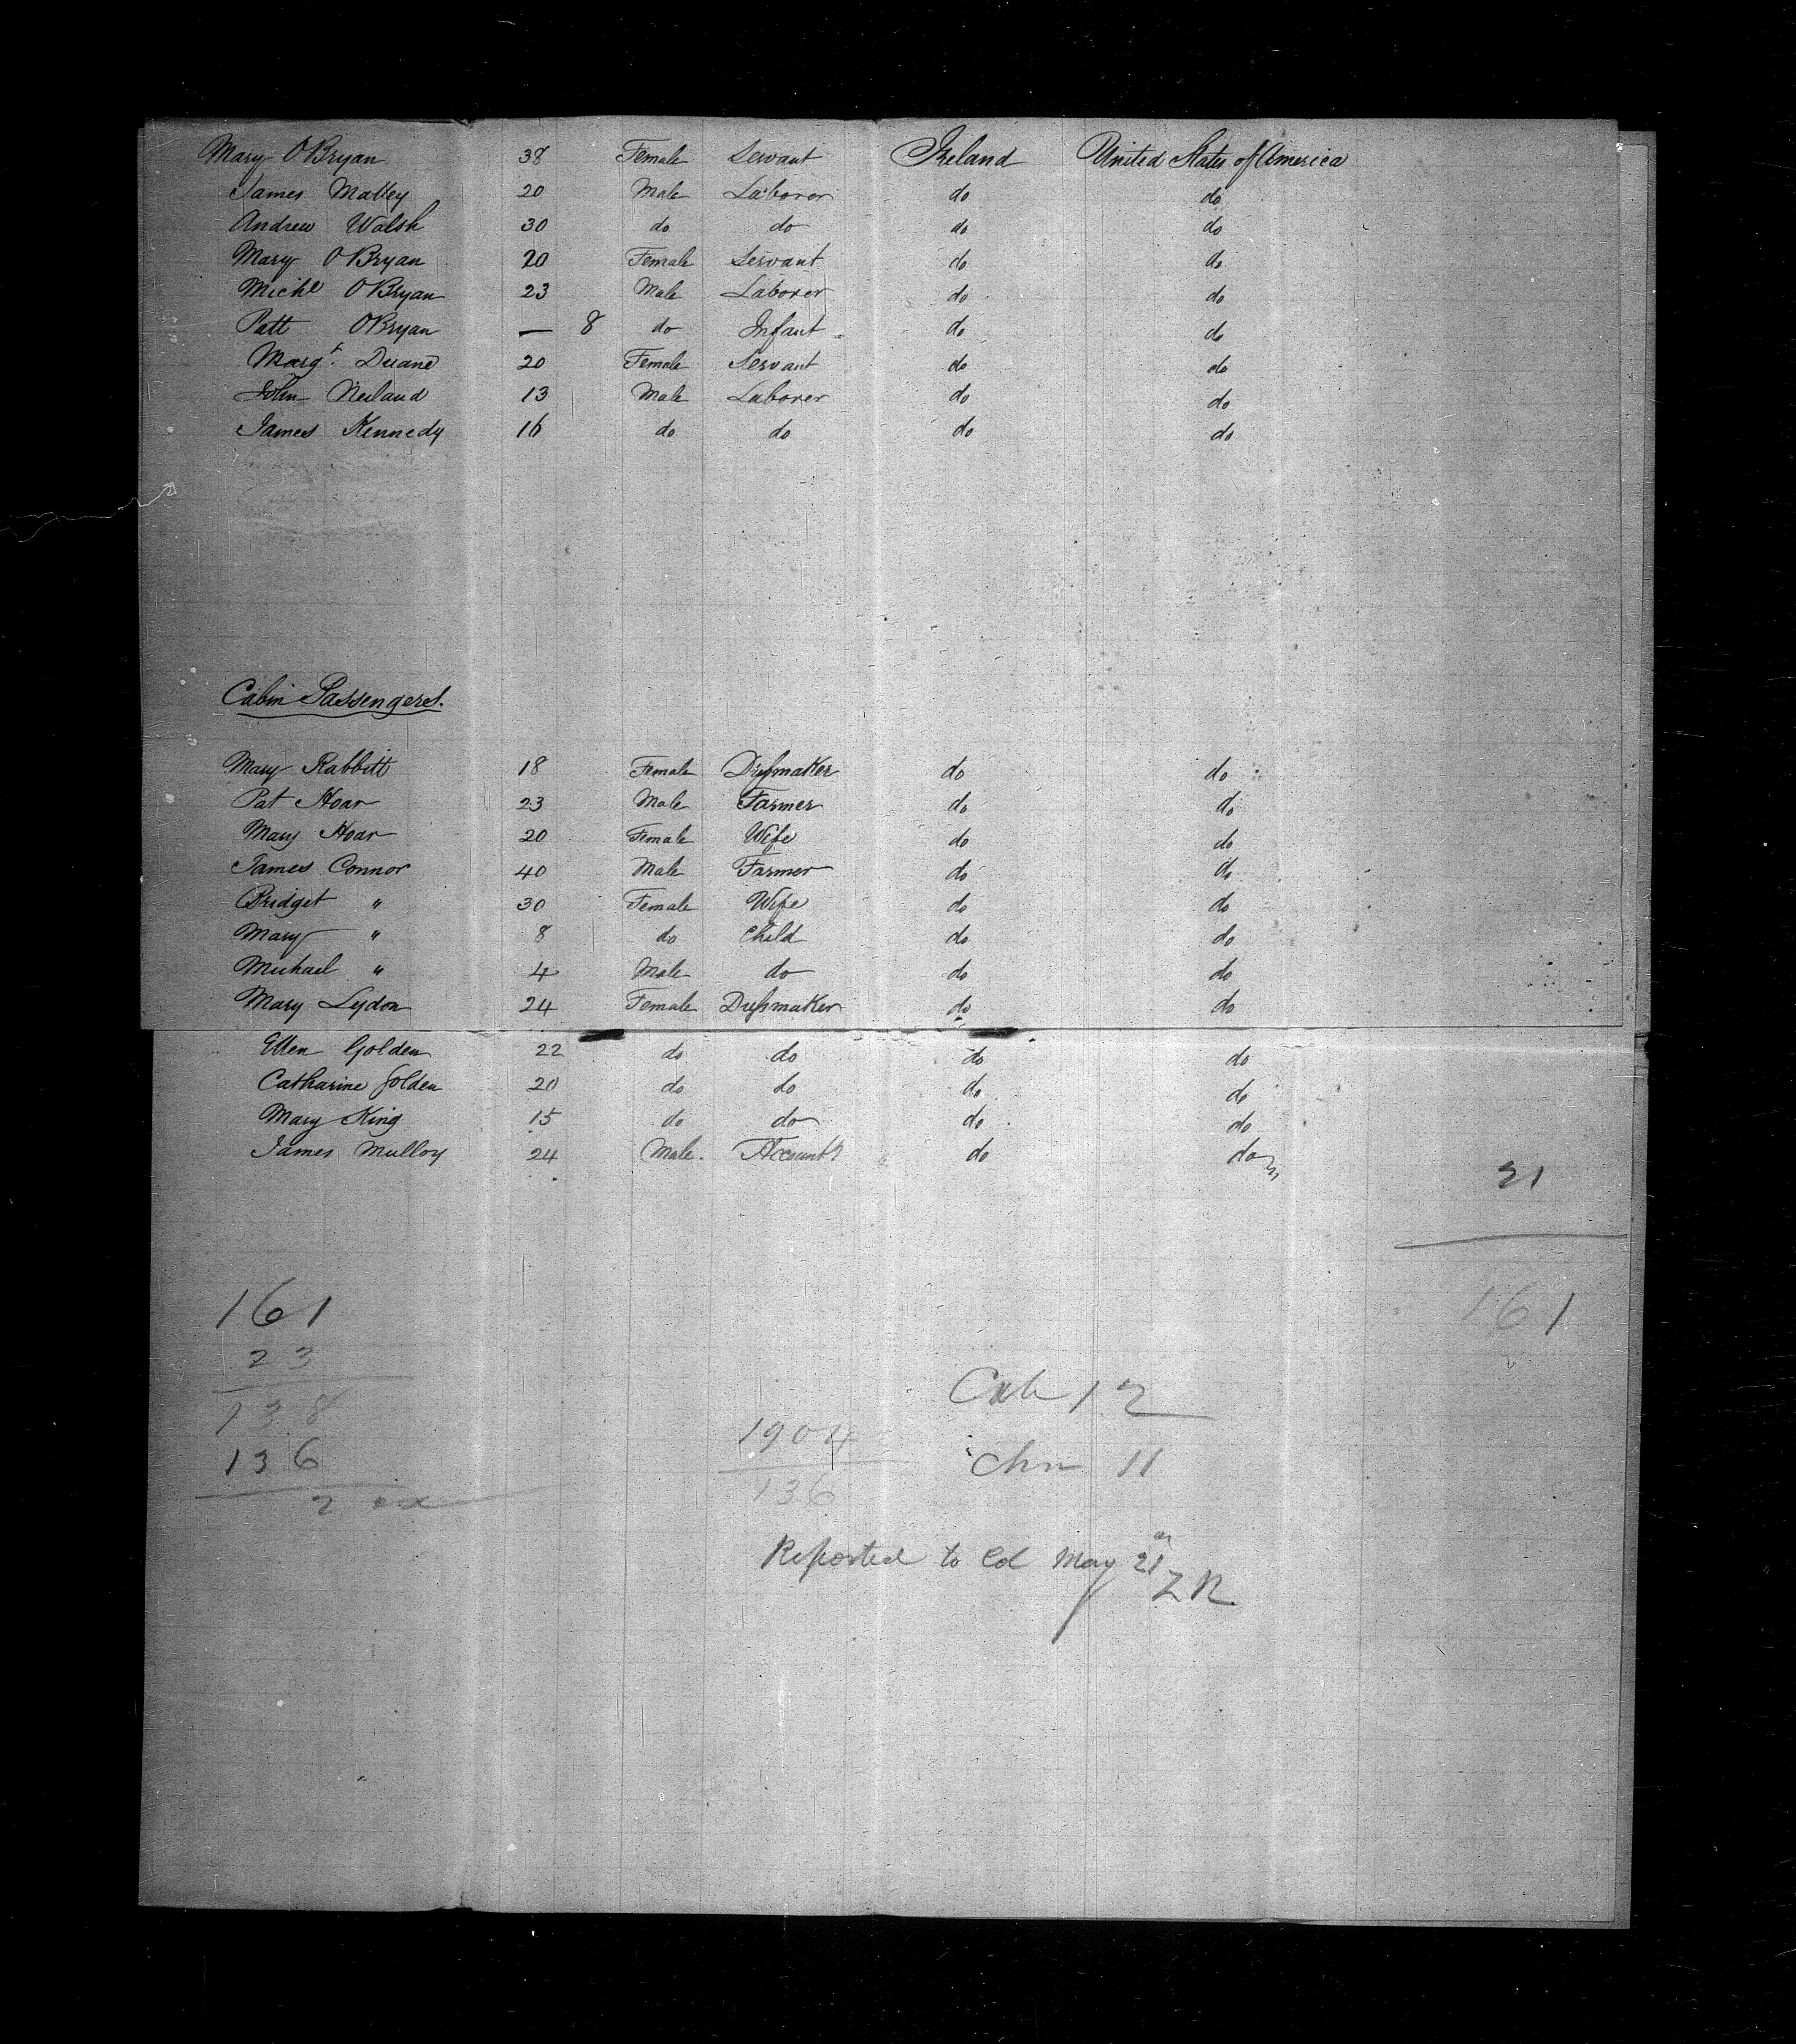 Mary OBryan 38 Female Servant Ireland United States of America
James Malley 20 Male Laborer do do
Andrew Walsh 30 do do do do
Mary OBryan 20 Female Servant do do
Michl OBryan 23 Male Laborer do do
Patt OBryan — 8 do Infant do do
Margt. Duane 20 Female Servant do do
John Neiland 13 Male Laborer do do
James Kennedy 16 do do do do
Cabin Passengers.
Mary Rabbitt 18 Female Dressmaker do do
Pat Hoar 23 Male Farmer do do
Mary Hoar 20 Female Wife do do
James Connor 40 Male Farmer do do
Bridget " 30 Female Wife do do
Mary " 8 do Child do do
Michael " 4 Male do do do
Mary Lydon 24 Female Dressmaker do do
Ellen Golden 22 do do do do
Catharine Golden 20 do do do do
Mary King 15 do do do do
James Mulloy 24 Male. Accountt do do
21
161
161
23
138
136
2 ex
Cab 12
1904
136
Chn 11
Reported to Col May 21